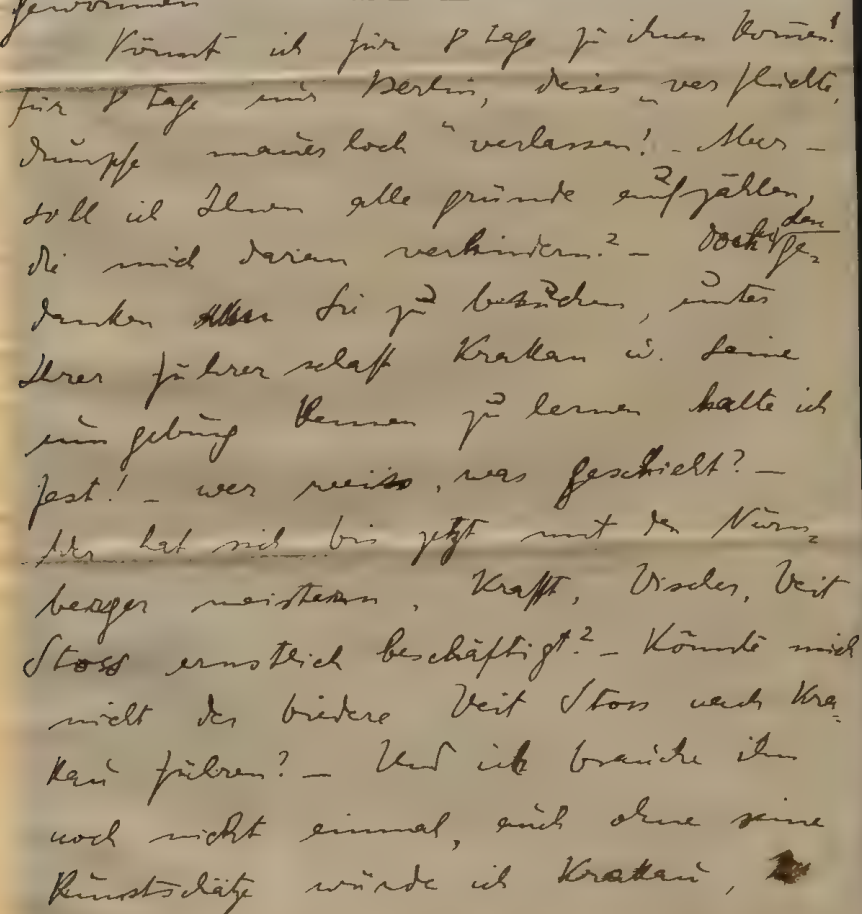 gewonnen
Könnt ich für 8 Tage zu ihnen kommen!
für 8 Tage nur Berlin, dieses „verfluchte,
dumpfe mauerloch“ verlassen! - Aber -
soll ich Ihnen alle gründe aufzählen,
die mich daran verhindern? - Doch den ge-
danken Sie zu besuchen, unter
Ihrer führerschaft Krakau u. seine
umgebung kennen zu lernen halte ich
fest! - wer weiss, was geschieht? -
Wer hat sich bis jetzt mit den Nürn-
berger meistern, Krafft, Vischer, Veit
Stoss ernstlich beschäftigt? - Könnte mich
nicht der biedere Veit Stoss nach Kra-
kau führen? - Und ich brauche ihn
noch nicht einmal, auch ohne seine
Kunstschätze würde ich Krakau,